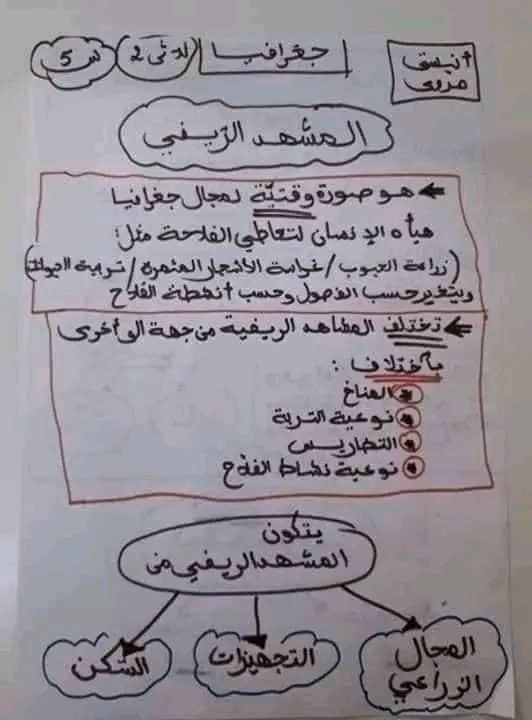 أنيستي مروى
جغرافيا
ثلاثي 2
س 5
المشهد الريفي
هو صورة وقتيّة لمجال جغرافيا
هيأه الإنسان لتعاطي الفلاحة مثل:
(زراعة الحبوب / غراسة الأشجار المثمرة / تربية الحيوانات)
ويتغير حسب الفصول وحسب أنشطة الفلاح
تختلف المشاهد الريفية من جهة الى أخرى
بإختلاف:
المناخ
نوعية التربة
التضاريس
نوعية نشاط الفلاح
يتكون
المشهد الريفي من
المجال الزراعي
التجهيزات
السكن